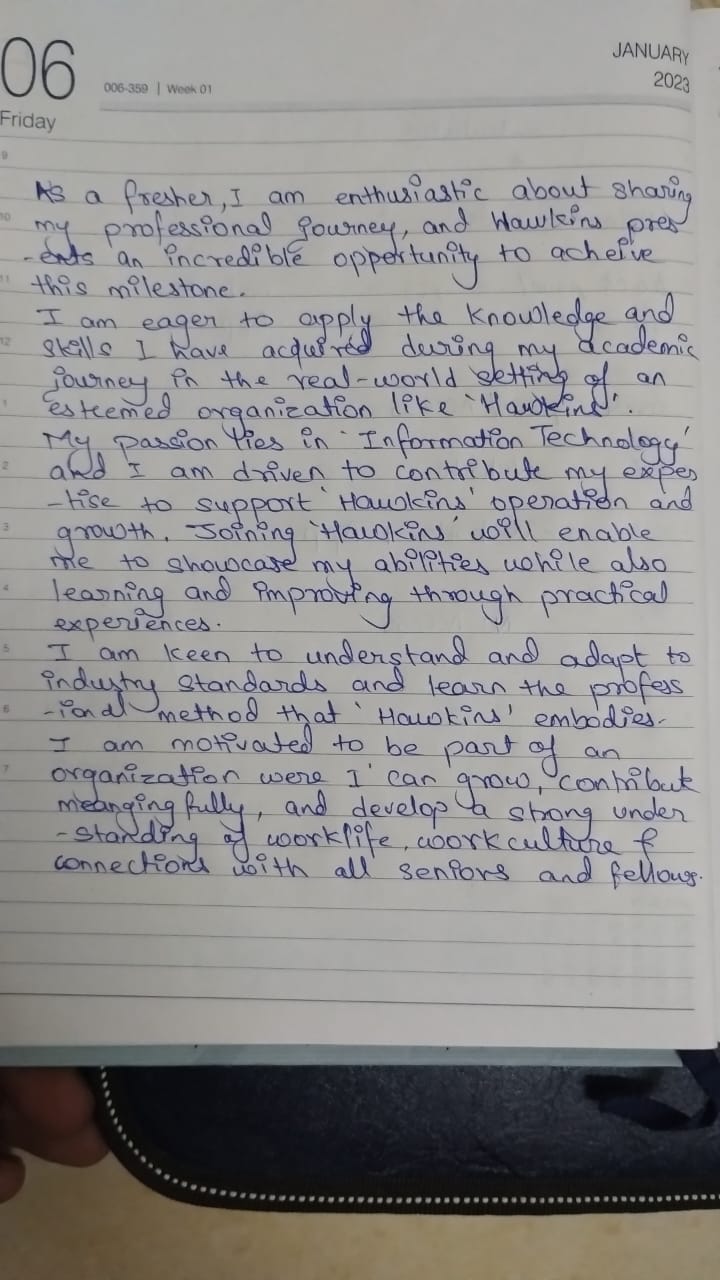 06
Friday
006-359 | Week 01
JANUARY
2023
9
As a fresher, I am enthusiastic about sharing
10 my professional journey, and Hawkins pres
-ents an incredible opportunity to acheive
11 this milestone.
I am eager to apply the knowledge and
12 skills I have acquired during my academic
journey in the real-world setting of an
1 esteemed organization like 'Hawkins'.
My passion lies in 'Information Technology'
2 and I am driven to contribute my exper
-tise to support 'Hawkins' operation and
3 growth. Joining 'Hawkins' will enable
me to showcase my abilities while also
4 learning and improving through practical
experiences.
5 I am keen to understand and adapt to
industry standards and learn the profess
6 -ional method that 'Hawkins' embodies.
I am motivated to be part of an
7 organization were I can grow, contribute
meangingfully, and develop a strong under
-standing of worklife, work culture &
connections with all seniors and fellows.